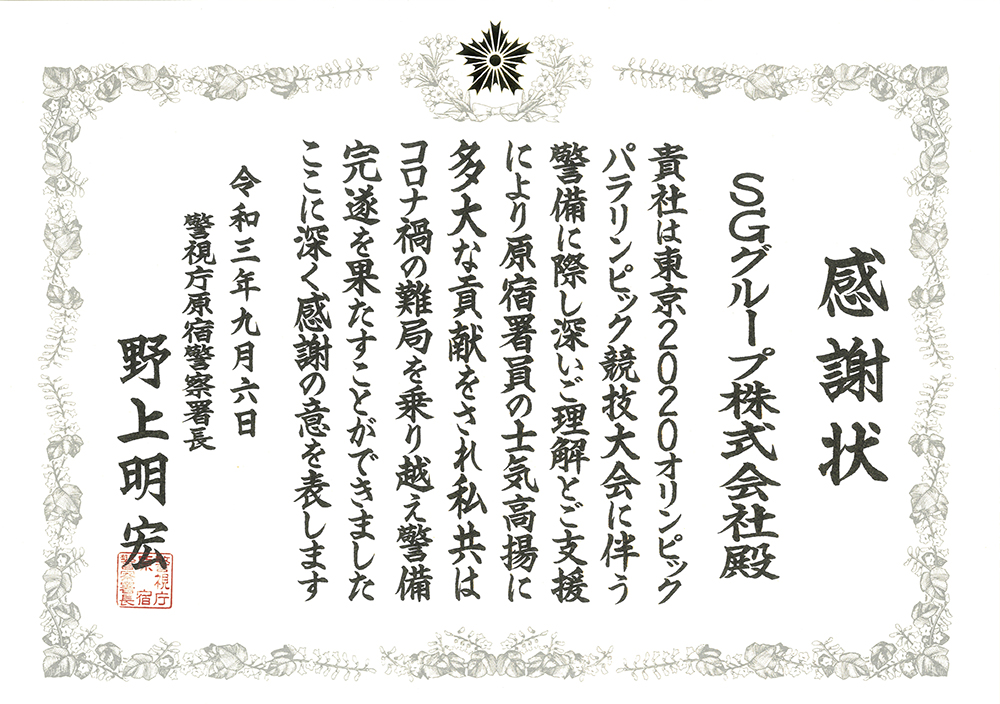 感謝状
SGグループ株式会社殿
貴社は東京2020オリンピック
パラリンピック競技大会に伴う
警備に際し深いご理解とご支援
により原宿署員の士気高揚に
多大な貢献をされ私共は
コロナ禍の難局を乗り越え警備
完遂を果たすことができました
ここに深く感謝の意を表します
令和三年九月六日
警視庁原宿警察署長
野上明宏
警視庁
原宿
警察署長